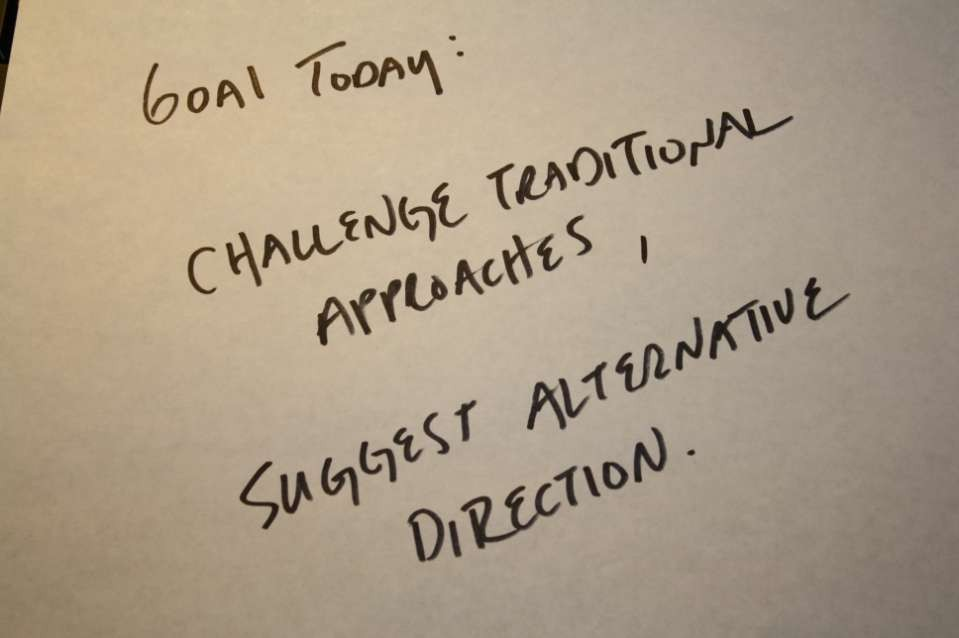 GOAL TODAY:
CHALLENGE TRADITIONAL
APPROACHES,
SUGGEST ALTERNATIVE
DIRECTION.